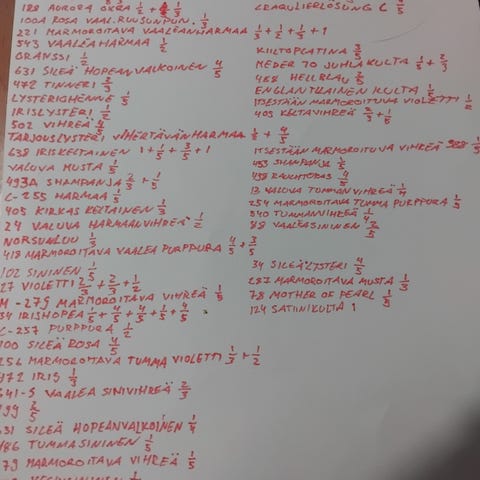 188 AURORA OKRA 1/2 +
100A ROSA VAAL. RUUSUNPUN. 1/3
221 MARMOROITAVA VAALEANHARMAA 1/3 + 1/2 + 1/3 + 1
543 VAALEA HARMAA 1/2
GRANSSI 1/2
631 SILEÄ HOPEANVALKOINEN 4/5
472 TINNERI 2/3
LYSTERIOHENNE 1/5
IRISLYSTERI 1/2
502 VIHREÄ 4/5
TARJOUSLYSTERI VIHERTÄVÄNHARMAA 1/5 + 4/5
638 IRISKELTAINEN 1 + 1/5 + 3/5 + 1
VALUVA MUSTA 1/5
493A SHAMPANJA 2/3 + 1/5
C-255 HARMAA 1/5
405 KIRKAS KELTAINEN 1/3
24 VALUVA HARMAANVIHREÄ 1/2
NORSUNLUU 1/3
418 MARMOROITAVA VAALEA PURPPURA 4/5 + 3/5
102 SININEN 1/5
27 VIOLETTI 2/3 + 2/3 + 1/2
M-279 MARMOROITAVA VIHREÄ 1/5
34 IRISHOPEA 1/5 + 4/5 + 4/5 + 1/5 + 4/5
C-237 PURPPURA 1/2
100 SILEÄ ROSA 4/5
256 MARMOROITAVA TUMMA VIOLETTI 1/3 + 1/2
472 IRIS 1/3
641-S VAALEA SINIVIHREÄ 2/3
199 2/5
631 SILEÄ HOPEANVALKOINEN 1/4
486 TUMMASININEN 1/5
79 MARMOROITAVA VIHREÄ 1/5
KILTOPLATINA 3/5
NEDER 70 JUHLAKULTA 1/5 + 2/3
464 HELLBLAU 2/5
ENGLANTILAINEN KULTA 1/5
ITSESTÄÄN MARMOROITUVA VIOLETTI 1/2
405 KELTAVIHREÄ 2/3 + 1/5
ITSESTÄÄN MARMOROITUVA VIHREÄ
493 SHAMPANJA 1/5
498 4/5
13 VALUVA TUMMANVIHREÄ
254 MARMOROITAVA TUMMA PURPPURA 1/5
540 TUMMANVIHREÄ 1/4
88 VAALEASININEN 2/5
34 SILEÄLYSTERI 4/5
282 MARMOROITAVA MUSTA 1/3
78 MOTHER OF PEARL 1/5
124 SATIINIKULTA 1